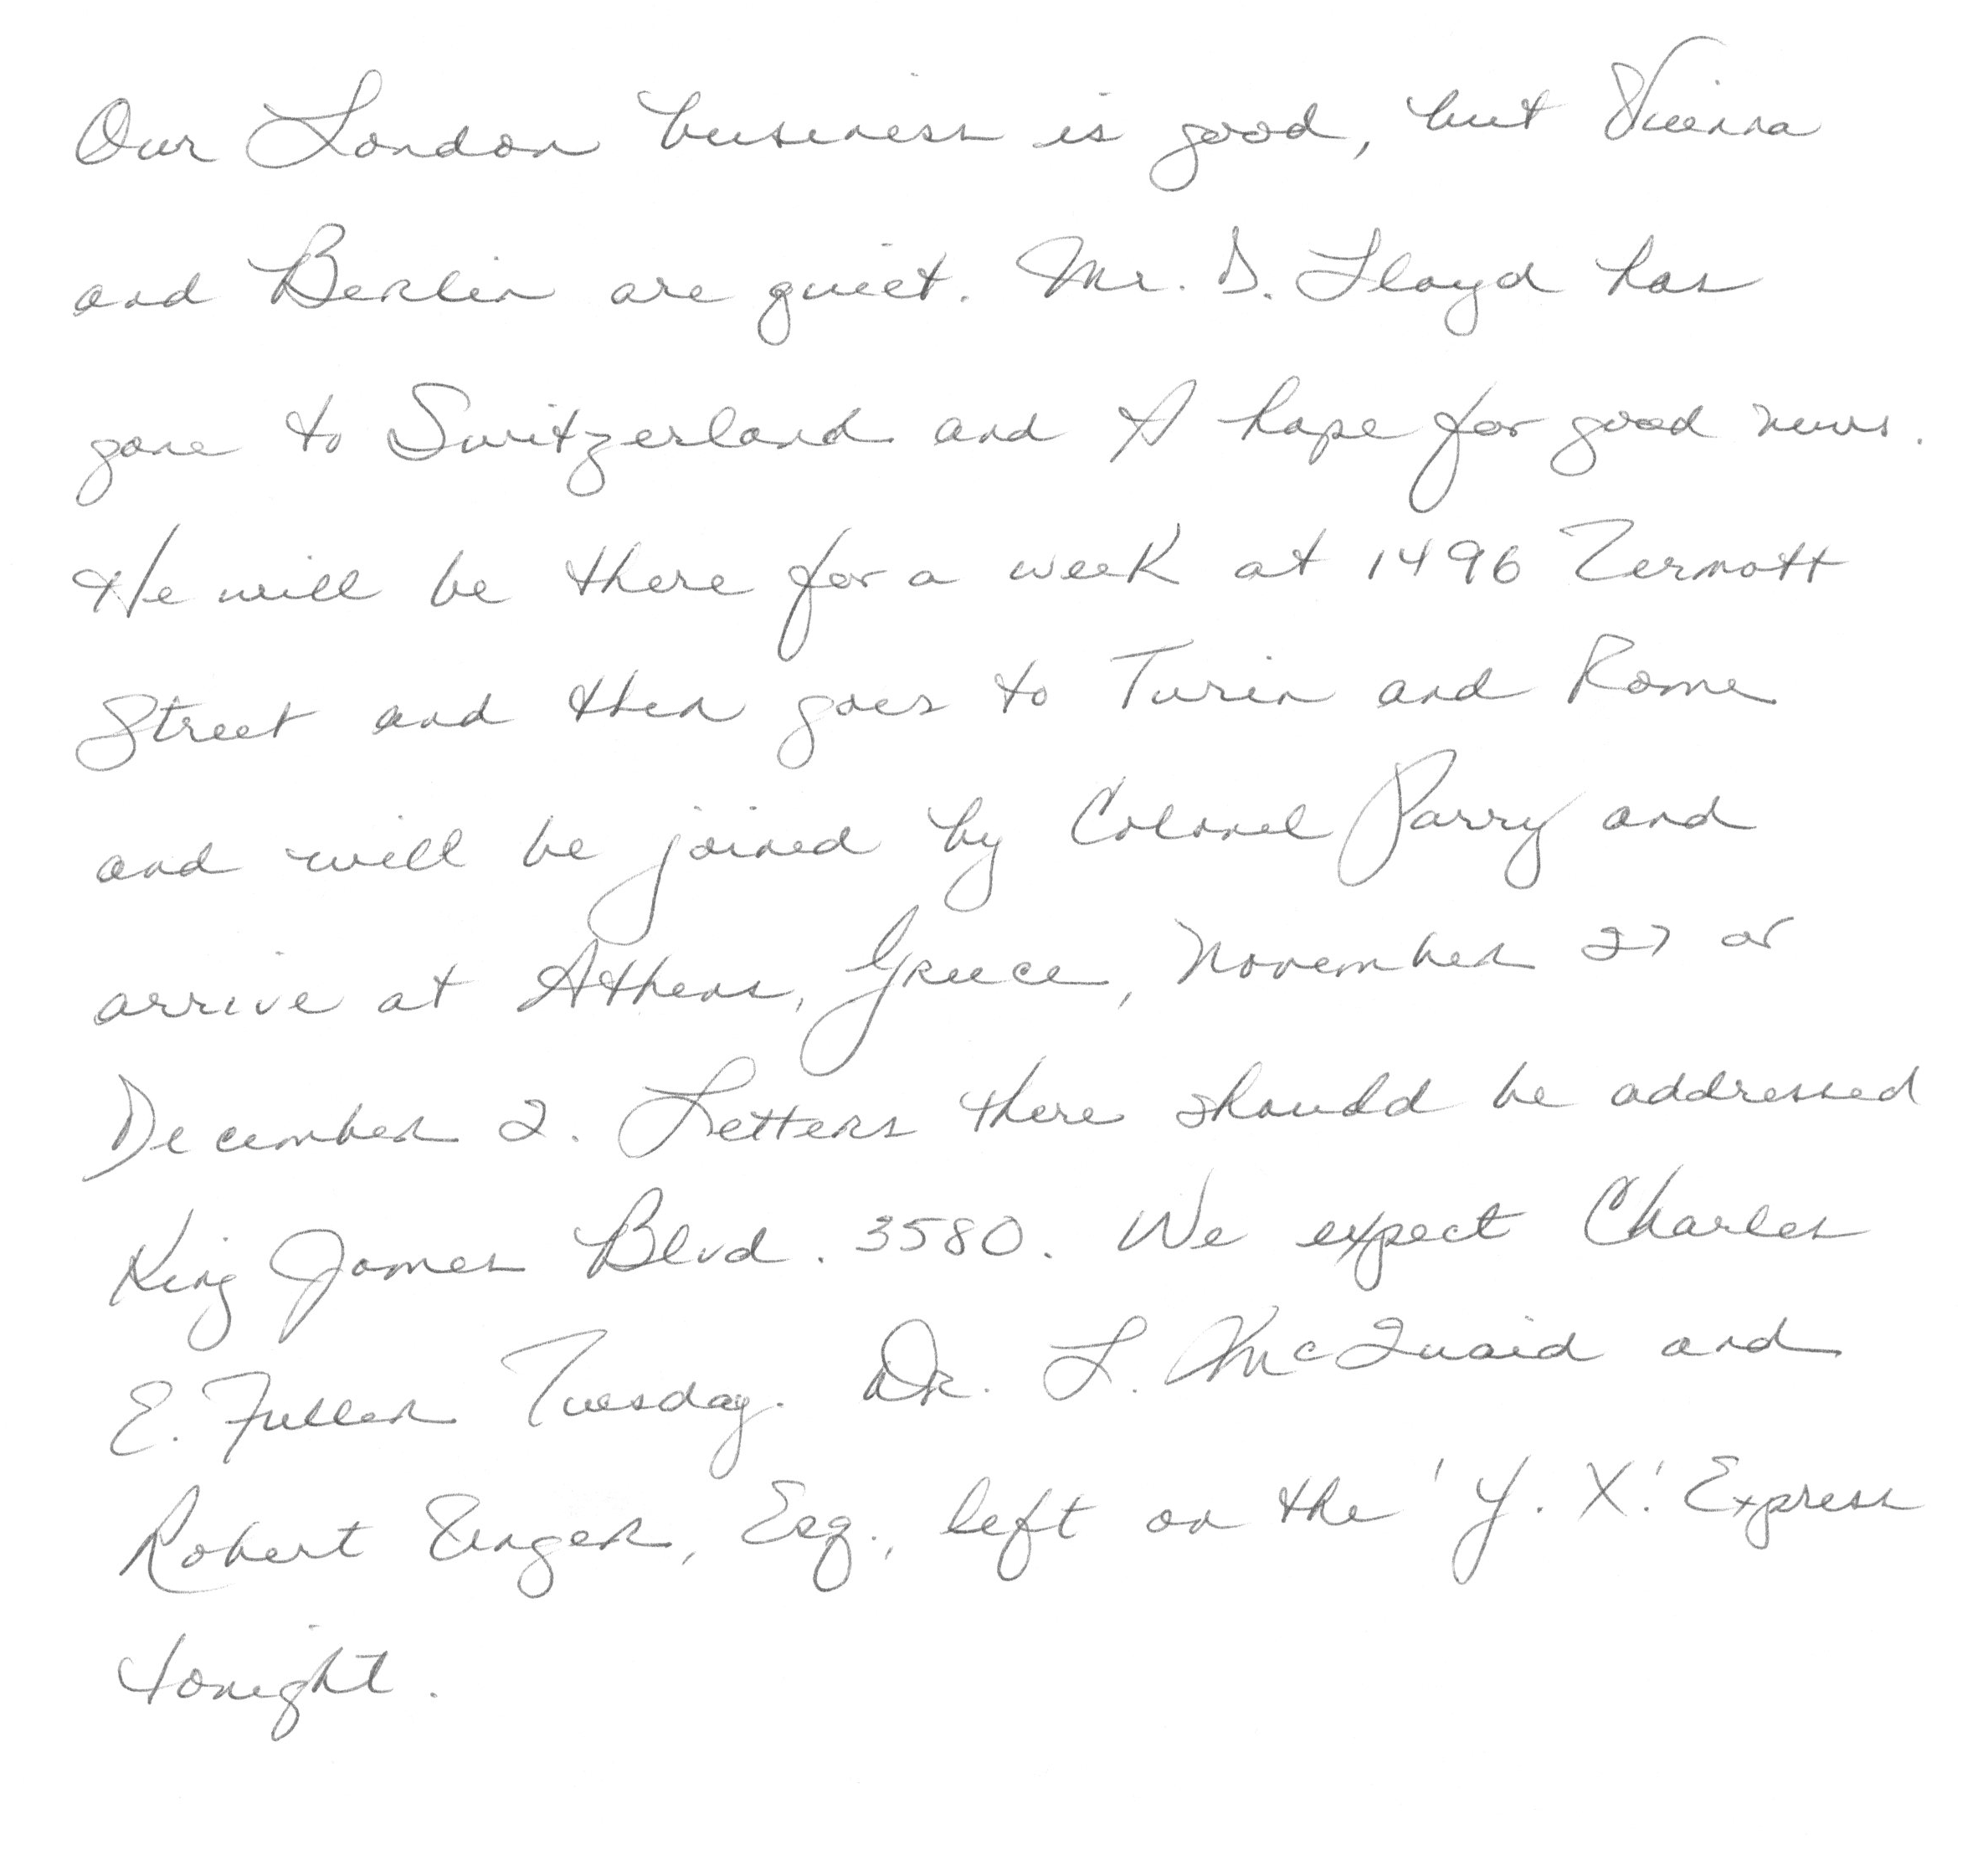 Our London business is good, but Vienna
and Berlin are quiet. Mr. D. Lloyd has
gone to Switzerland and I hope for good news.
He will be there for a week at 1496 Zermott
Street and then goes to Turin and Rome
and will be joined by Colonel Parry and
arrive at Athens, Greece, November 27 or
December 2. Letters there should be addressed
King James Blvd. 3580. We expect Charles
E. Fuller Tuesday. Dr. L. McQuaid and
Robert Unger, Esq., left on the 'Y. X.' Express
tonight.